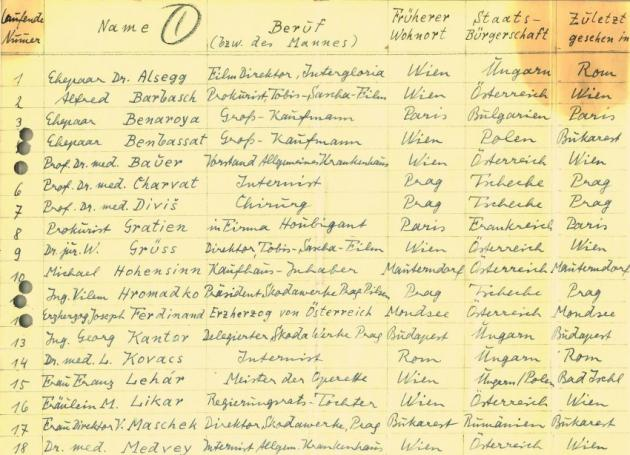 Laufende Numer Name 1 Beruf (bzw. des Mannes) Früherer Wohnort Staats-Bürgerschaft Zuletzt gesehen in
1 Ehepaar Dr. Alsegg Film Direktor, Intergloria Wien Ungarn Rom
2 Alfred Barbasch Prokurist, Tobis-Sascha-Film Wien Österreich Wien
3 Ehepaar Benaroya Groß-Kaufmann Paris Bulgarien Paris
Ehepaar Benbassat Groß-Kaufmann Wien Polen Bukarest
Prof. Dr. med. Bauer Vorstand Allgemeines Krankenhaus Wien Österreich Wien
6 Prof. Dr. med. Charvat Internist Prag Tscheche Prag
7 Prof. Dr. med. Diviš Chirurg Prag Tscheche Prag
8 Prokurist Gratien in Firma Houbigant Paris Frankreich Paris
9 Dr. jur. W. Grüss Direktor, Tobis-Sascha-Film Wien Österreich Wien
10 Michael Hohensinn Kaufhaus-Inhaber Mauterndorf Österreich Mauterndorf
Ing. Vilem Hromadko Präsident, Skodawerke Prag Pilsen Prag Tscheche Prag
Erzherzog Joseph Ferdinand Erzherzog von Österreich Mondsee Österreich Mondsee
13 Ing. Georg Kantor Delegierter Skoda Werke Prag Budapest Ungarn Budapest
14 Dr. med. L. Kovacs Internist Rom Ungarn Rom
15 Frau Franz Lehár Meister der Operette Wien Ungarn/Polen Bad Ischl
16 Fräulein M. Likar Regierungsrats-Tochter Wien Österreich Wien
17 Frau Direktor V. Maschek Direktor, Skodawerke, Prag Bukarest Rumänien Bukarest
18 Dr. med. Medvey Internist Allgem. Krankenhaus Wien Österreich Wien